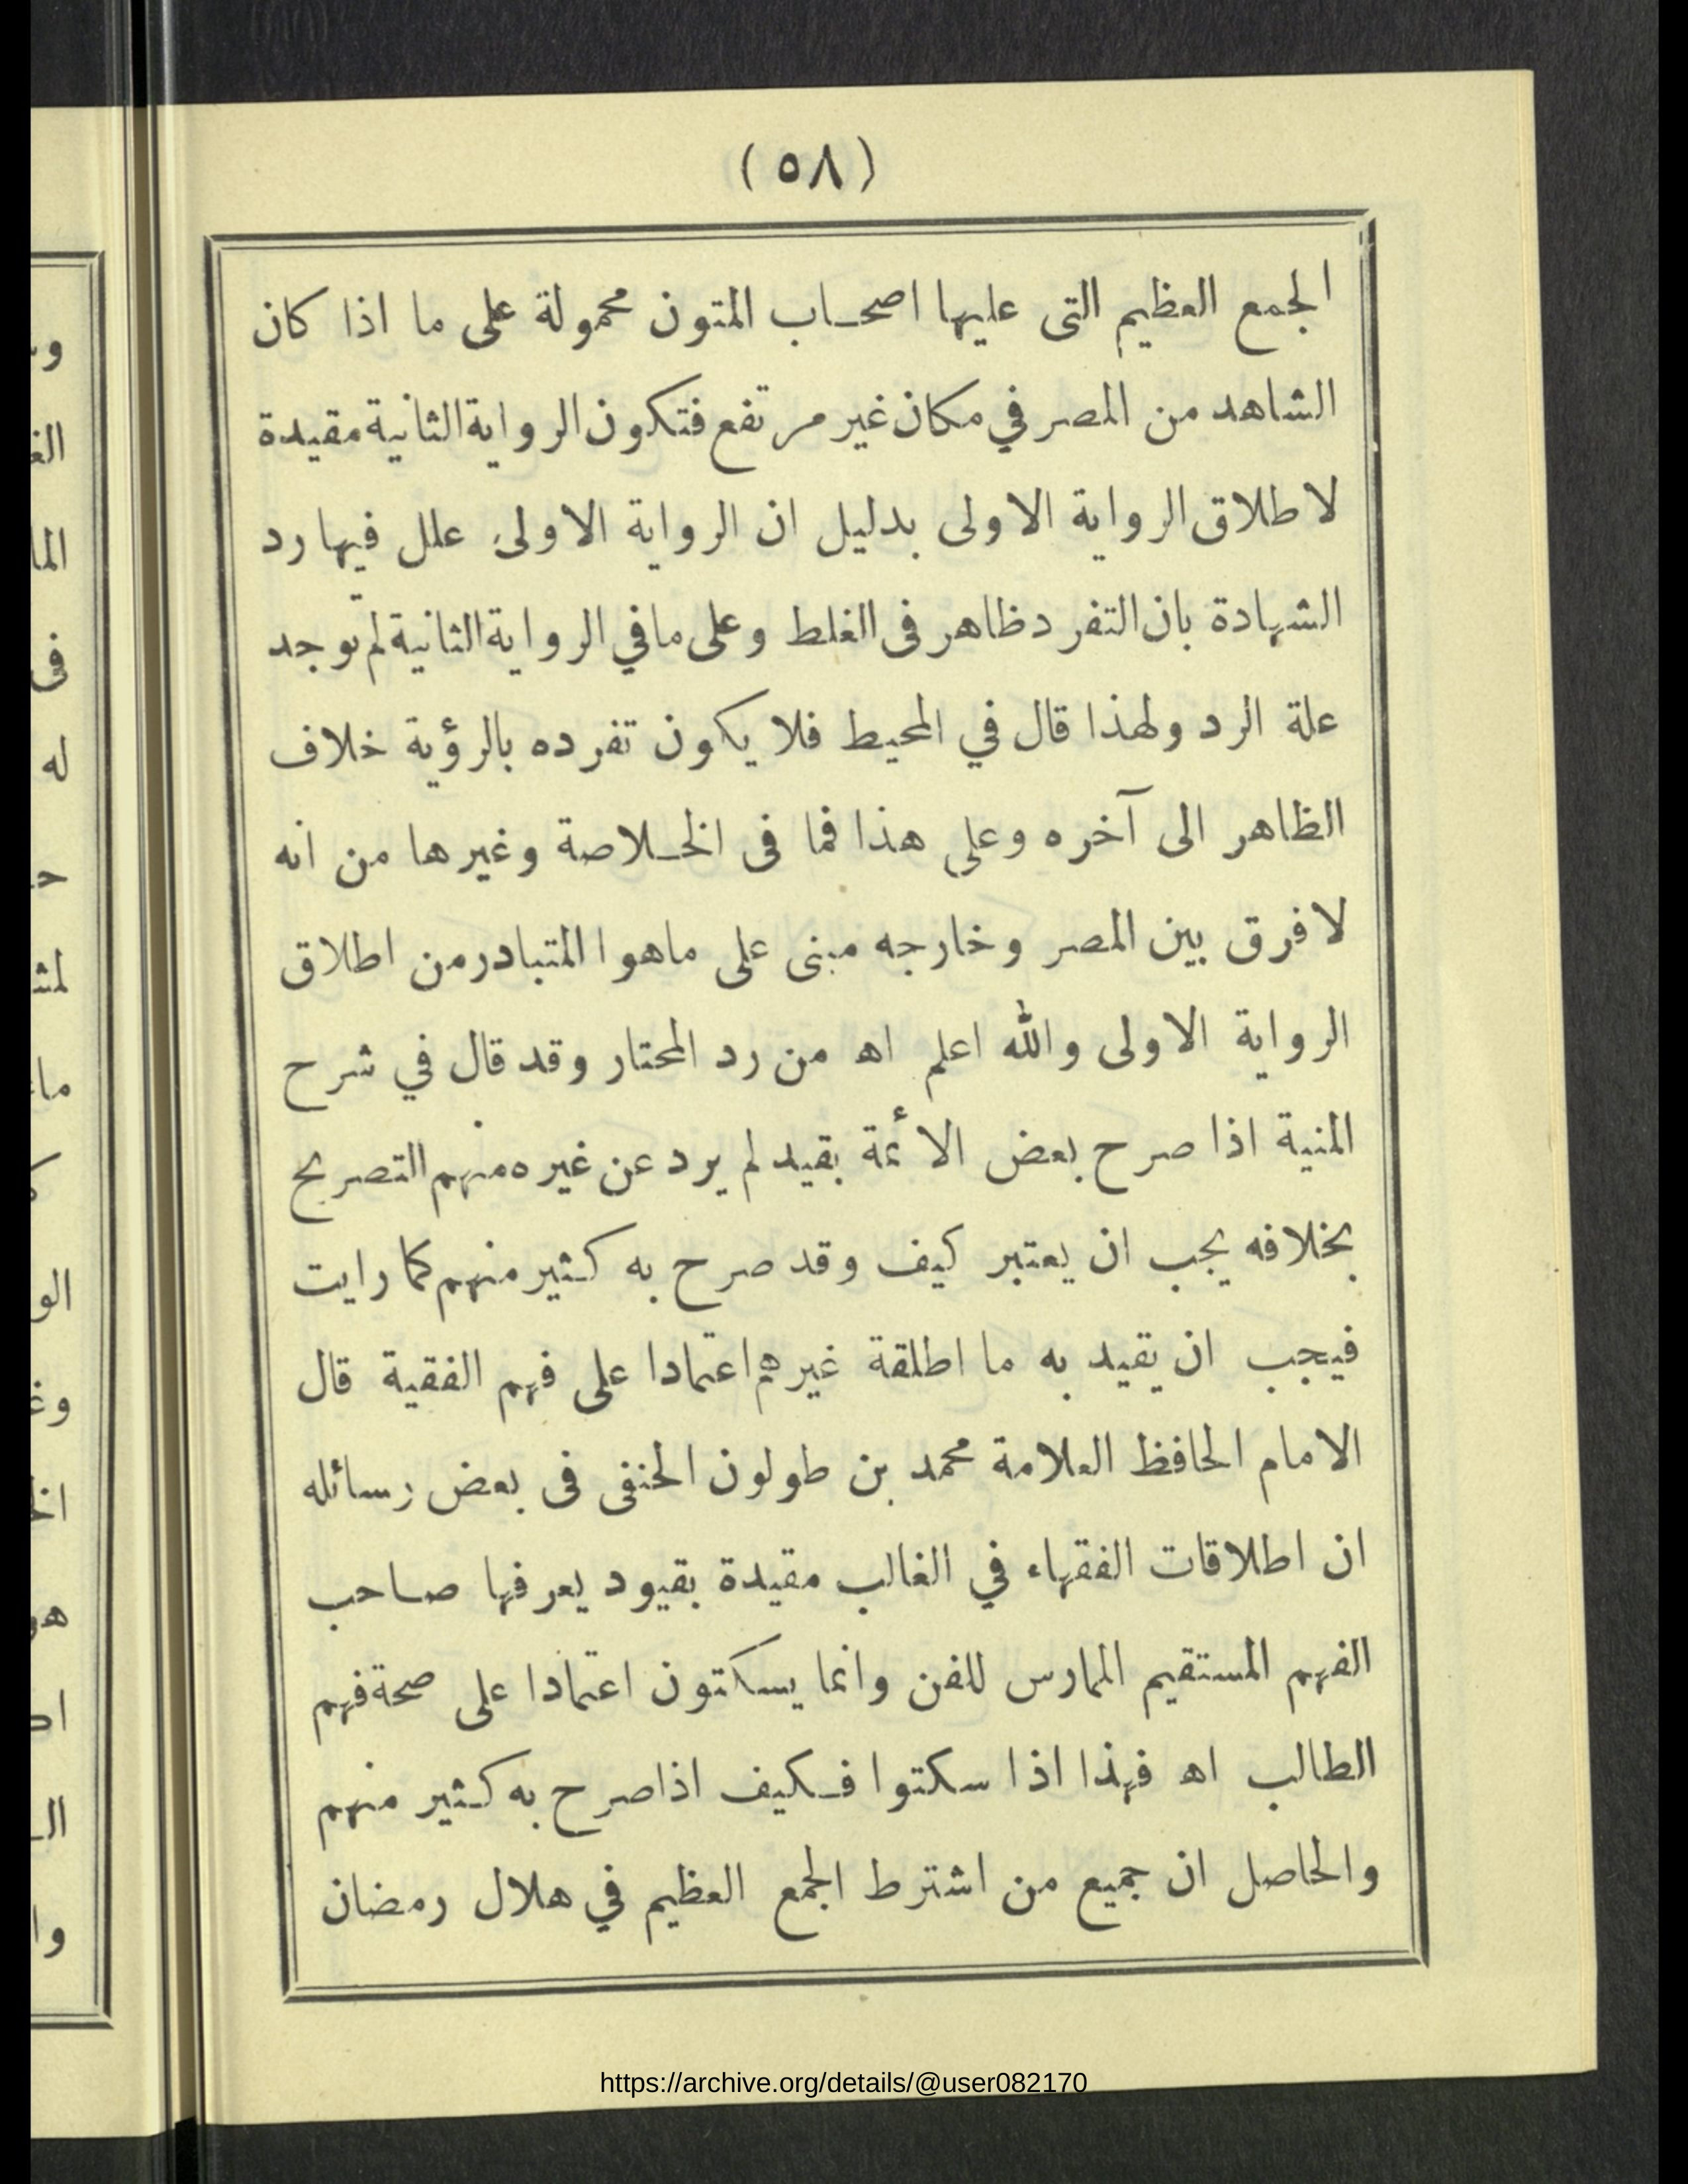 (٥٨)
الجمع العظيم التى عليها اصحاب المتون محمولة على ما اذا كان
الشاهد من المصر في مكان غير مرتفع فتكون الرواية الثانية مقيدة
لاطلاق الرواية الاولى بدليل ان الرواية الاولى علل فيها رد
الشهادة بان التفرد ظاهر فى الغلط وعلى ما في الرواية الثانية لم توجد
علة الرد ولهذا قال في المحيط فلا يكون تفرده بالرؤية خلاف
الظاهر الى آخره وعلى هذا فما فى الخلاصة وغيرها من انه
لا فرق بين المصر وخارجه مبنى على ماهوا المتبادر من اطلاق
الرواية الاولى والله اعلم اه من رد المحتار وقد قال في شرح
المنية اذا صرح بعض الائمة بقيد لم يرد عن غيره منهم التصريح
بخلافه يجب ان يعتبر كيف وقد صرح به كثير منهم كما رايت
فيجب ان يقيد به ما اطلقة غيرهم اعتمادا على فهم الفقية قال
الامام الحافظ العلامة محمد بن طولون الحنفى فى بعض رسائله
ان اطلاقات الفقهاء في الغالب مقيدة بقيود يعرفها صاحب
الفهم المستقيم الممارس للفن وانما يسكتون اعتمادا على صحة فهم
الطالب اه فهذا اذا سكتوا فكيف اذا صرح به كثير منهم
والحاصل ان جميع من اشترط الجمع العظيم في هلال رمضان
https://archive.org/details/@user082170